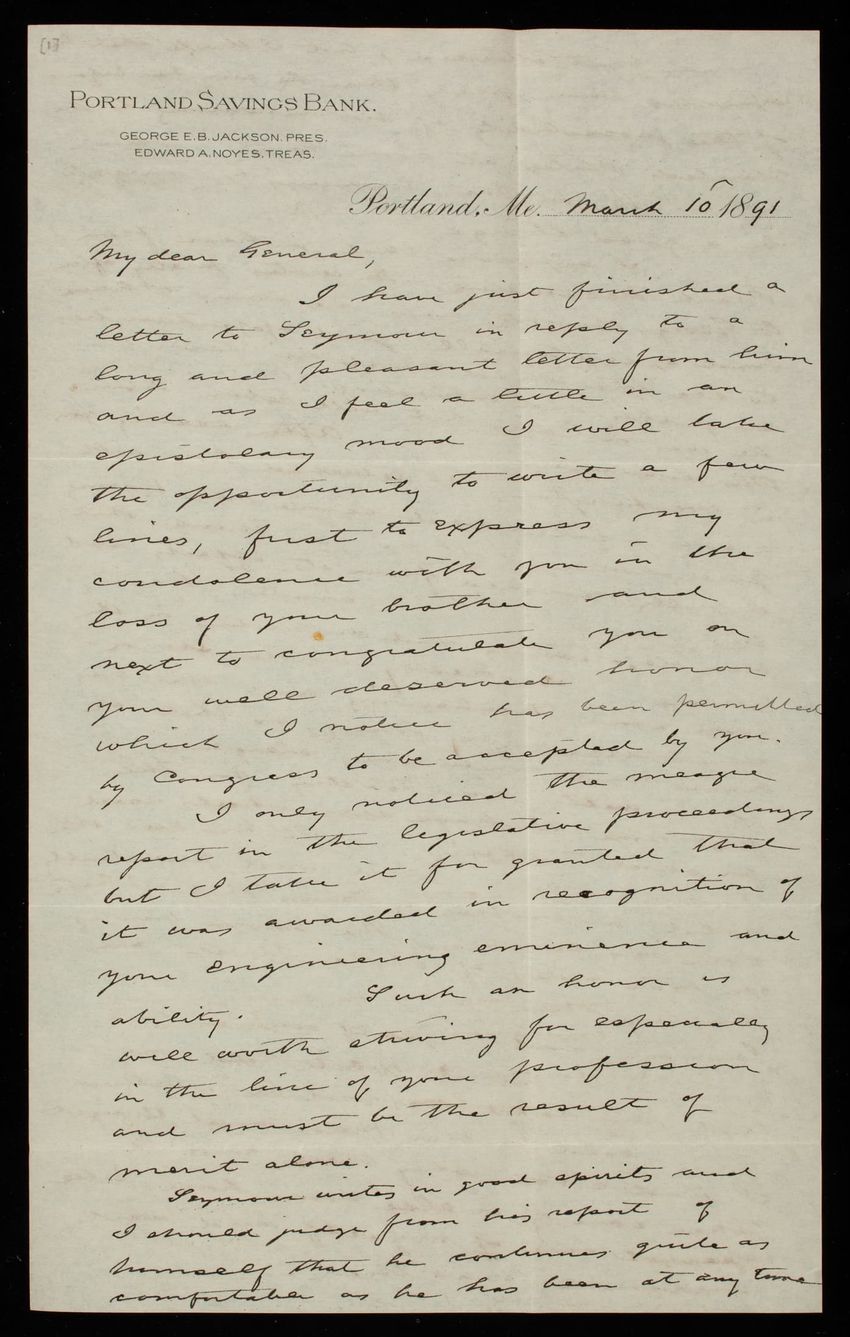 [1]
PORTLAND SAVINGS BANK.
GEORGE E. B. JACKSON. PRES.
EDWARD A. NOYES. TREAS.
Portland, Me. March 10 1891
My dear General,
I have just finished a
letter to Seymour in reply to a
long and pleasant letter from him
and as I feel a little in an
epistolary mood I will take
the opportunity to write a few
lines, first to express my
condolence with you in the
loss of your brother and
next to congratulate you on
your well deserved honor
which I notice has been permitted
by Congress to be accepted by you.
I only noticed the meagre
report in the legislative proceedings
but I take it for granted that
it was awarded in recognition of
your engineering eminence and
ability. Such an honor is
well worth striving for especially
in the line of your profession
and must be the result of
merit alone.
Seymour writes in good spirits and
I should judge from his report of
himself that he continues quite as
comfortable as he has been at any time